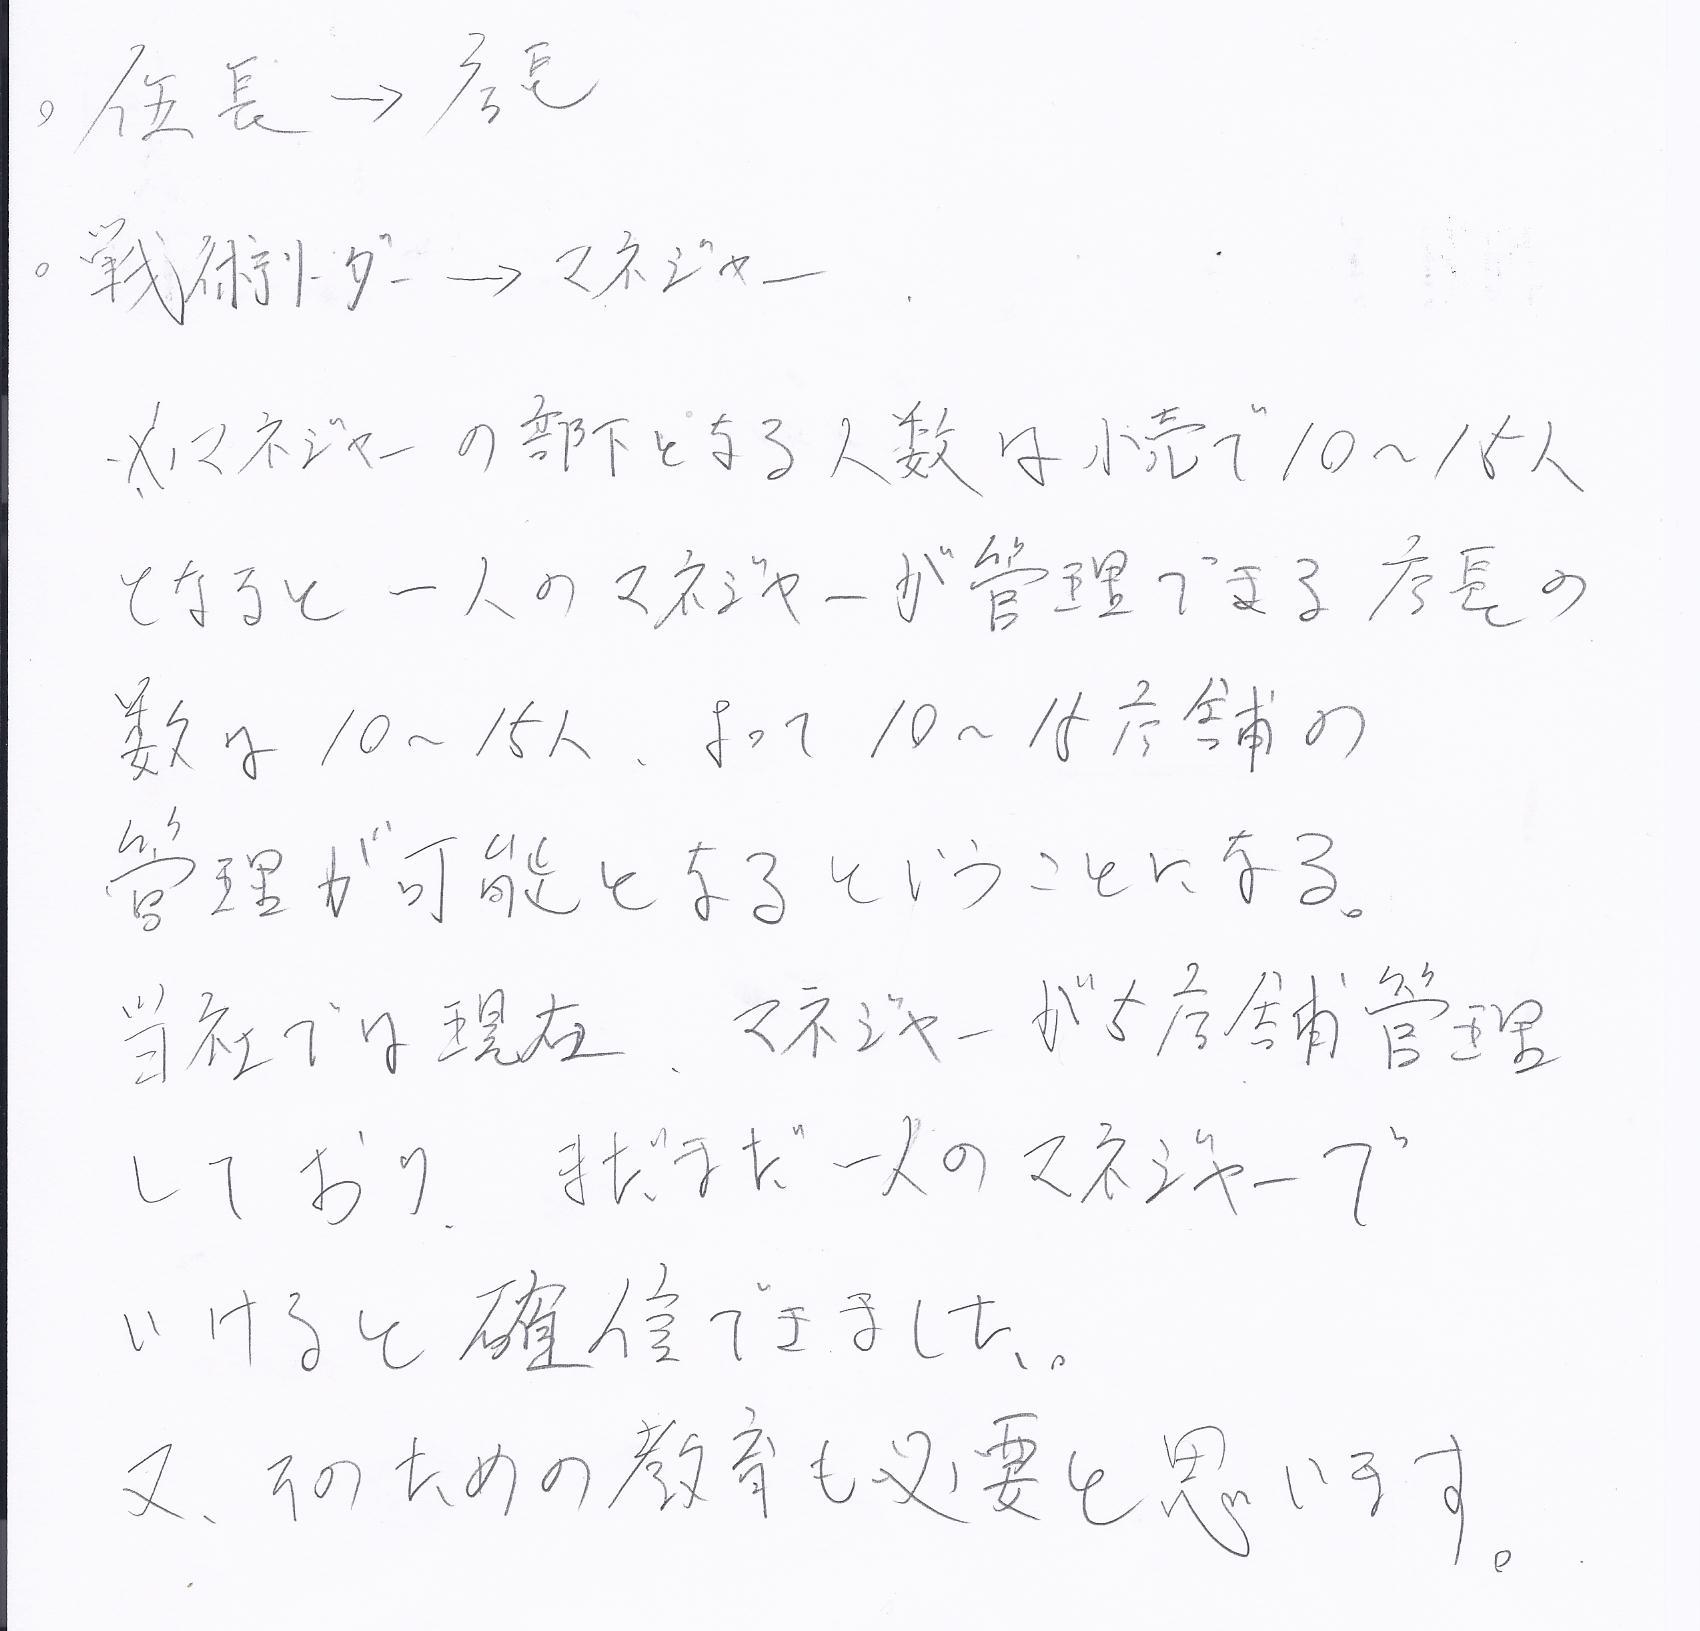 。伍長→店長
。戦術リーダー→マネジャー
※マネジャーの部下となる人数は小売で10〜15人
となると一人のマネジャーが管理できる店長の
数は10〜15人、よって10〜15店舗の
管理が可能となるということになる。
当社では現在、マネジャーが5店舗管理
しており、まだまだ一人のマネジャーで
いけると確信できました。
又、そのための教育も必要と思います。